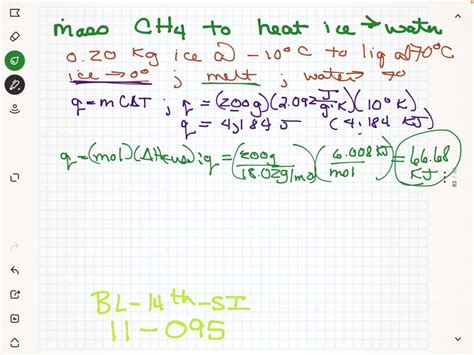 mass CH4 to heat ice → water
0.20 Kg ice @ -10°C to liq @ 70°C
ice → 0° ; melt ; water → 70
q = m C ΔT ; q = (200g)(2.092 J/g·K)(10°K)
q = 4,184 J (4.184 KJ)
q = (mol)(ΔHfus) ; q = (200g/18.02g/mol)(6.008 KJ/mol) = 66.68 KJ
BL-14th-SI
11-095